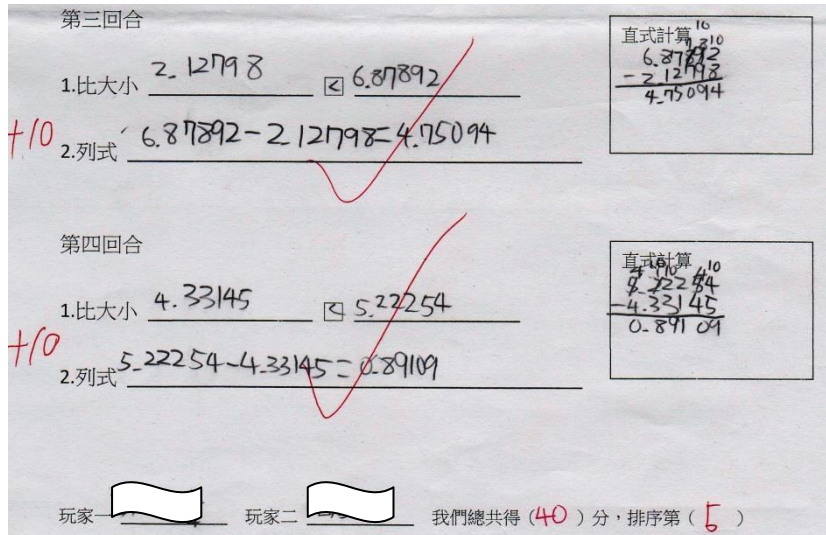 第三回合
1.比大小 2.12798 < 6.87892
+10
2.列式 6.87892-2.12798=4.75094
直式計算
6.87892
-2.12798
4.75094
第四回合
1.比大小 4.33145 < 5.22254
+10
2.列式 5.22254-4.33145=0.89109
直式計算
5.22254
-4.33145
0.89109
玩家一 玩家二 我們總共得(40)分,排序第(5)